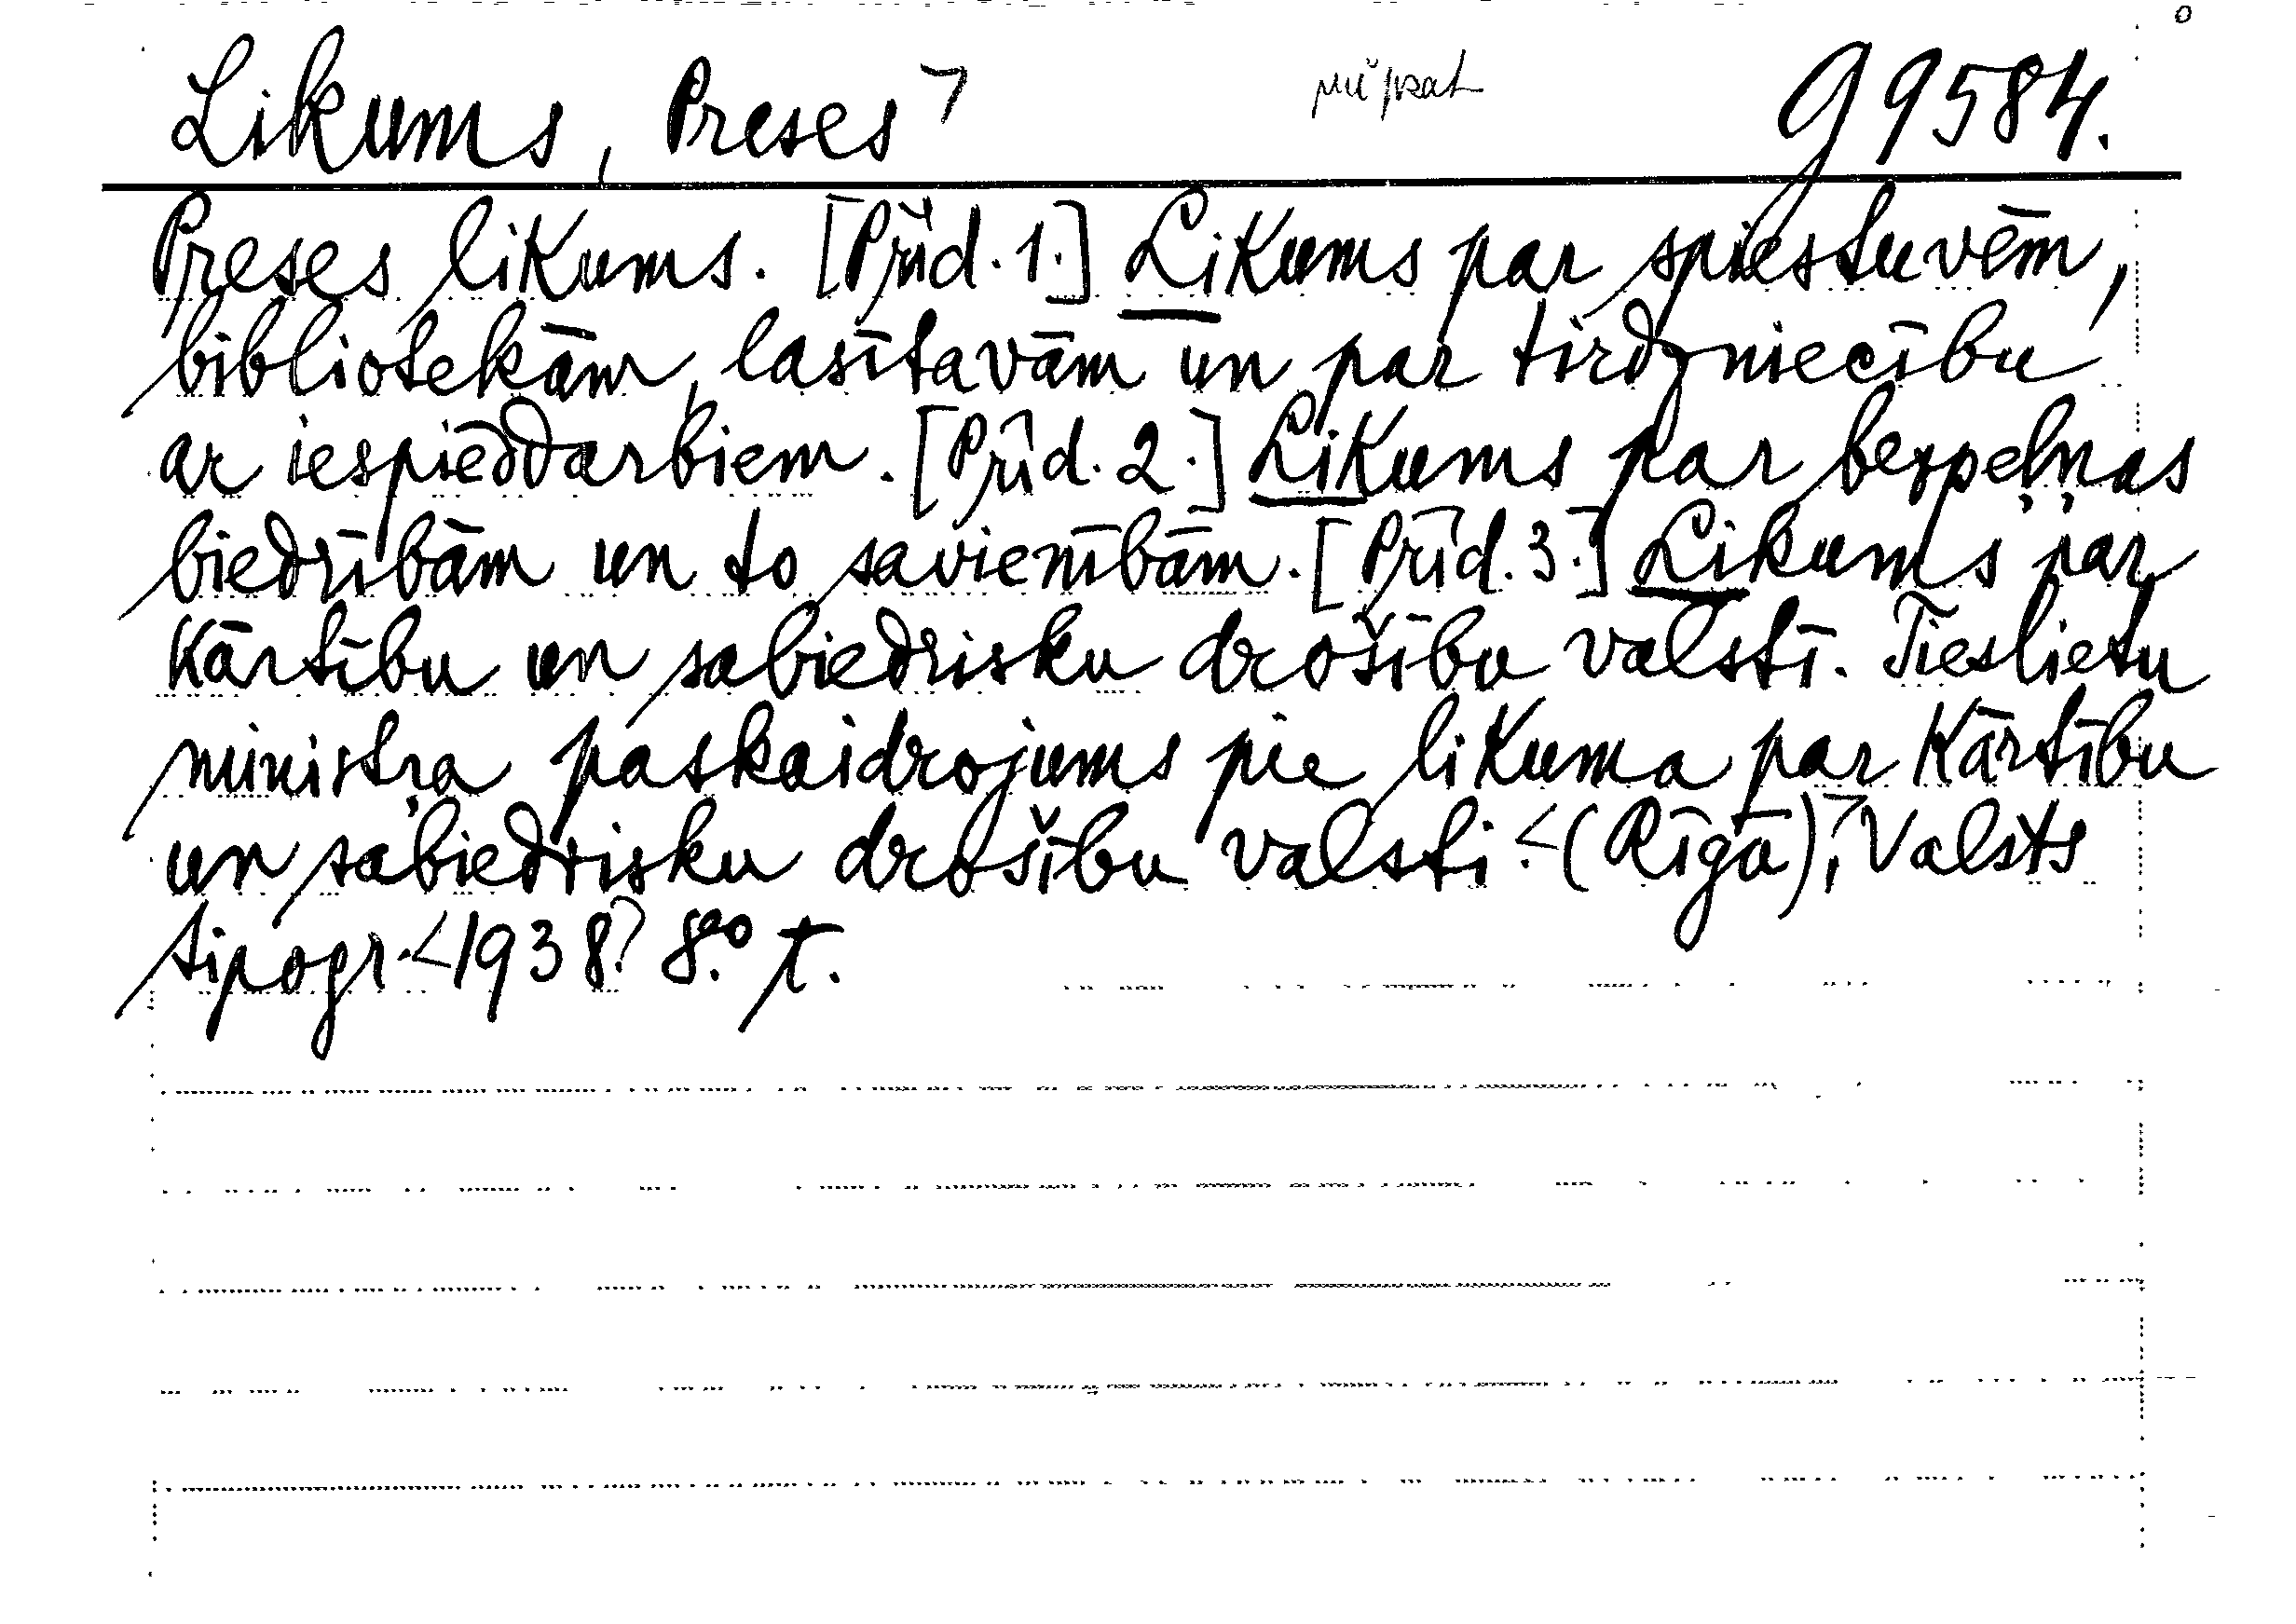 Likums, Preses> 99584.
Preses likums. [Prīd. 1.] Likums par spiestuvēm,
bibliotekām, lasītavām un par tirdzniecību
ar iespieddarbiem. [Prīd. 2.] Likums par bezpeļņas
biedrībām un to savienībām. [Prīd. 3.] Likums par
Kārtību un sabiedrisku drošību valstī. Tieslietu
ministŗa paskaidrojums pie likuma par Kārtību
un sabiedrisku drošību valstī. <(Rīgā)>, Valsts
tipogr. <1938> 8°.